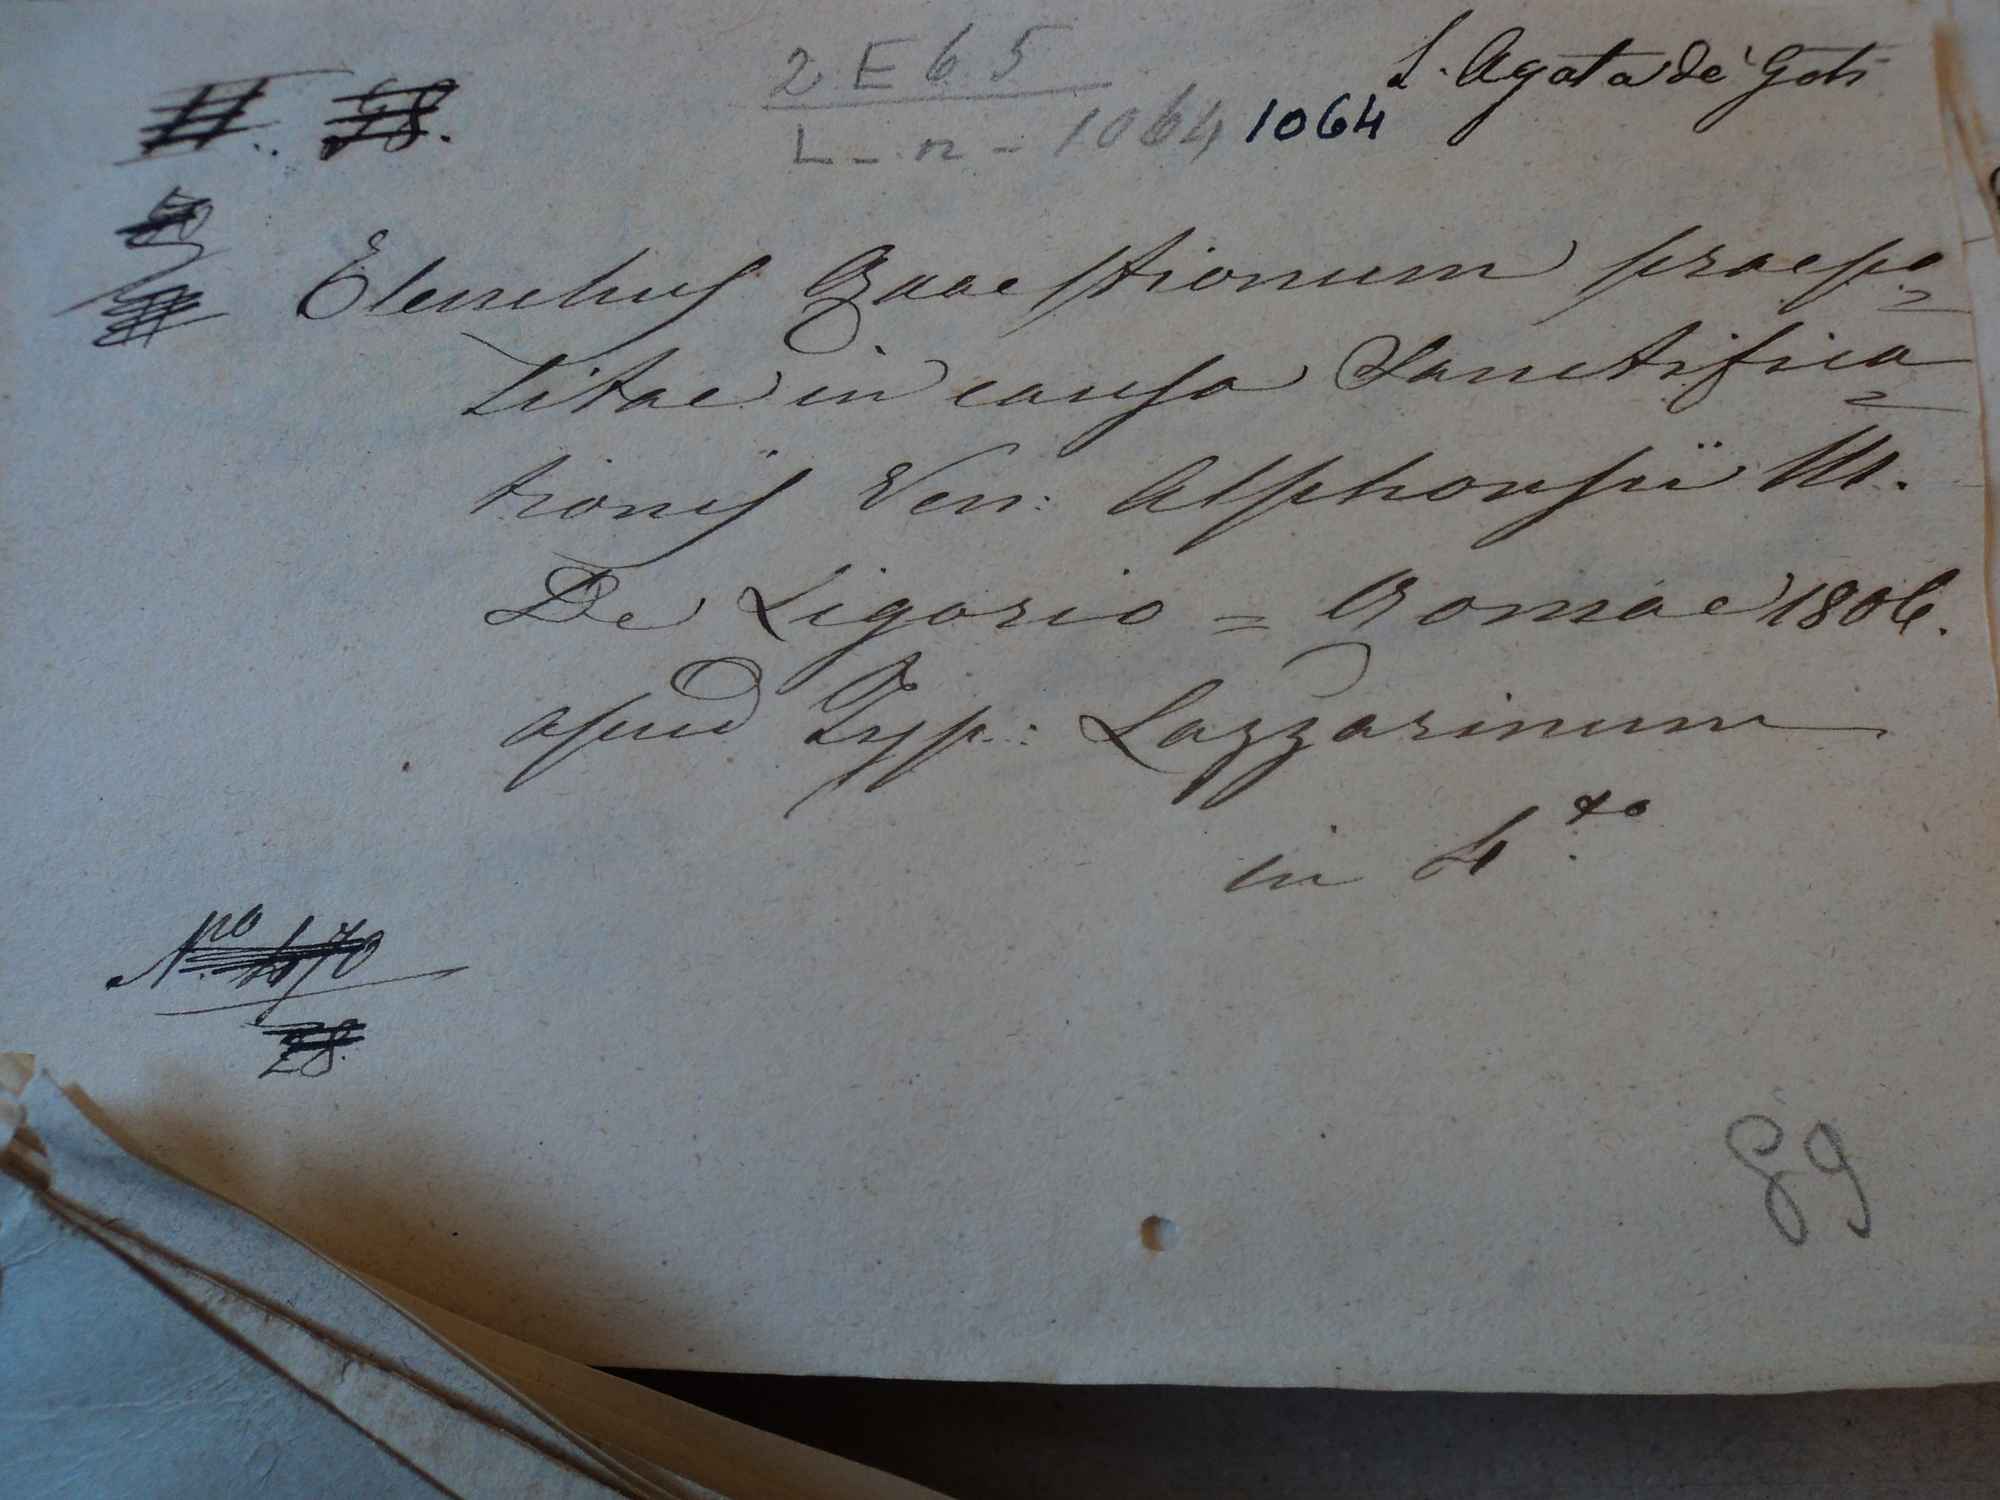 2 E 65
L - n - 1064 1064
S. Agata de' Goti
Elenchus Quaestionum praepo=
sitae in causa Sanctifica=
tionis Ven: Alphonsii M.
De Ligorio = Romae 1806.
apud Typ: Lazzarinum
in 4.to
N.ro
28.
89